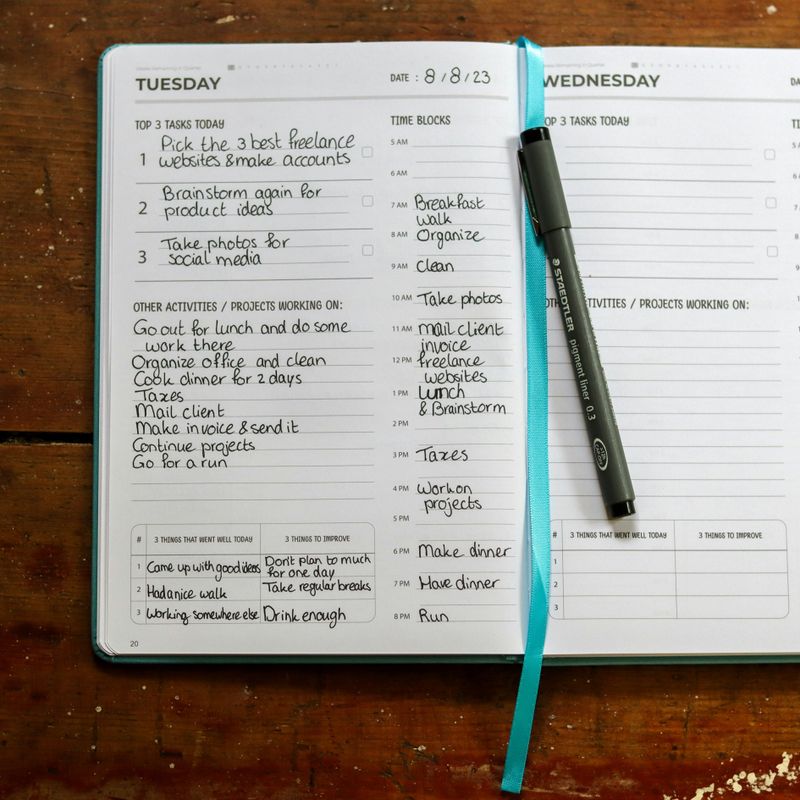 TUESDAY
DATE : 8/8/23
TOP 3 TASKS TODAY
1 Pick the 3 best freelance
websites & make accounts
2 Brainstorm again for
product ideas
3 Take photos for
social media
OTHER ACTIVITIES / PROJECTS WORKING ON:
Go out for lunch and do some
work there
Organize office and clean
Cook dinner for 2 days
Taxes
Mail client
Make invoice & send it
Continue projects
Go for a run
# 3 THINGS THAT WENT WELL TODAY 3 THINGS TO IMPROVE
1 Came up with good ideas Don't plan to much
for one day
2 Had a nice walk Take regular breaks
3 Working somewhere else Drink enough
20
TIME BLOCKS
5 AM
6 AM
7 AM Breakfast
walk
8 AM Organize
9 AM Clean
10 AM Take photos
11 AM Mail client
invoice
12 PM freelance
websites
1 PM Lunch
& Brainstorm
2 PM
3 PM Taxes
4 PM Work on
projects
5 PM
6 PM Make dinner
7 PM Have dinner
8 PM Run
STAEDTLER pigment liner 0.3
WEDNESDAY
TOP 3 TASKS TODAY
ACTIVITIES / PROJECTS WORKING ON:
# 3 THINGS THAT WENT WELL TODAY 3 THINGS TO IMPROVE
1
2
3